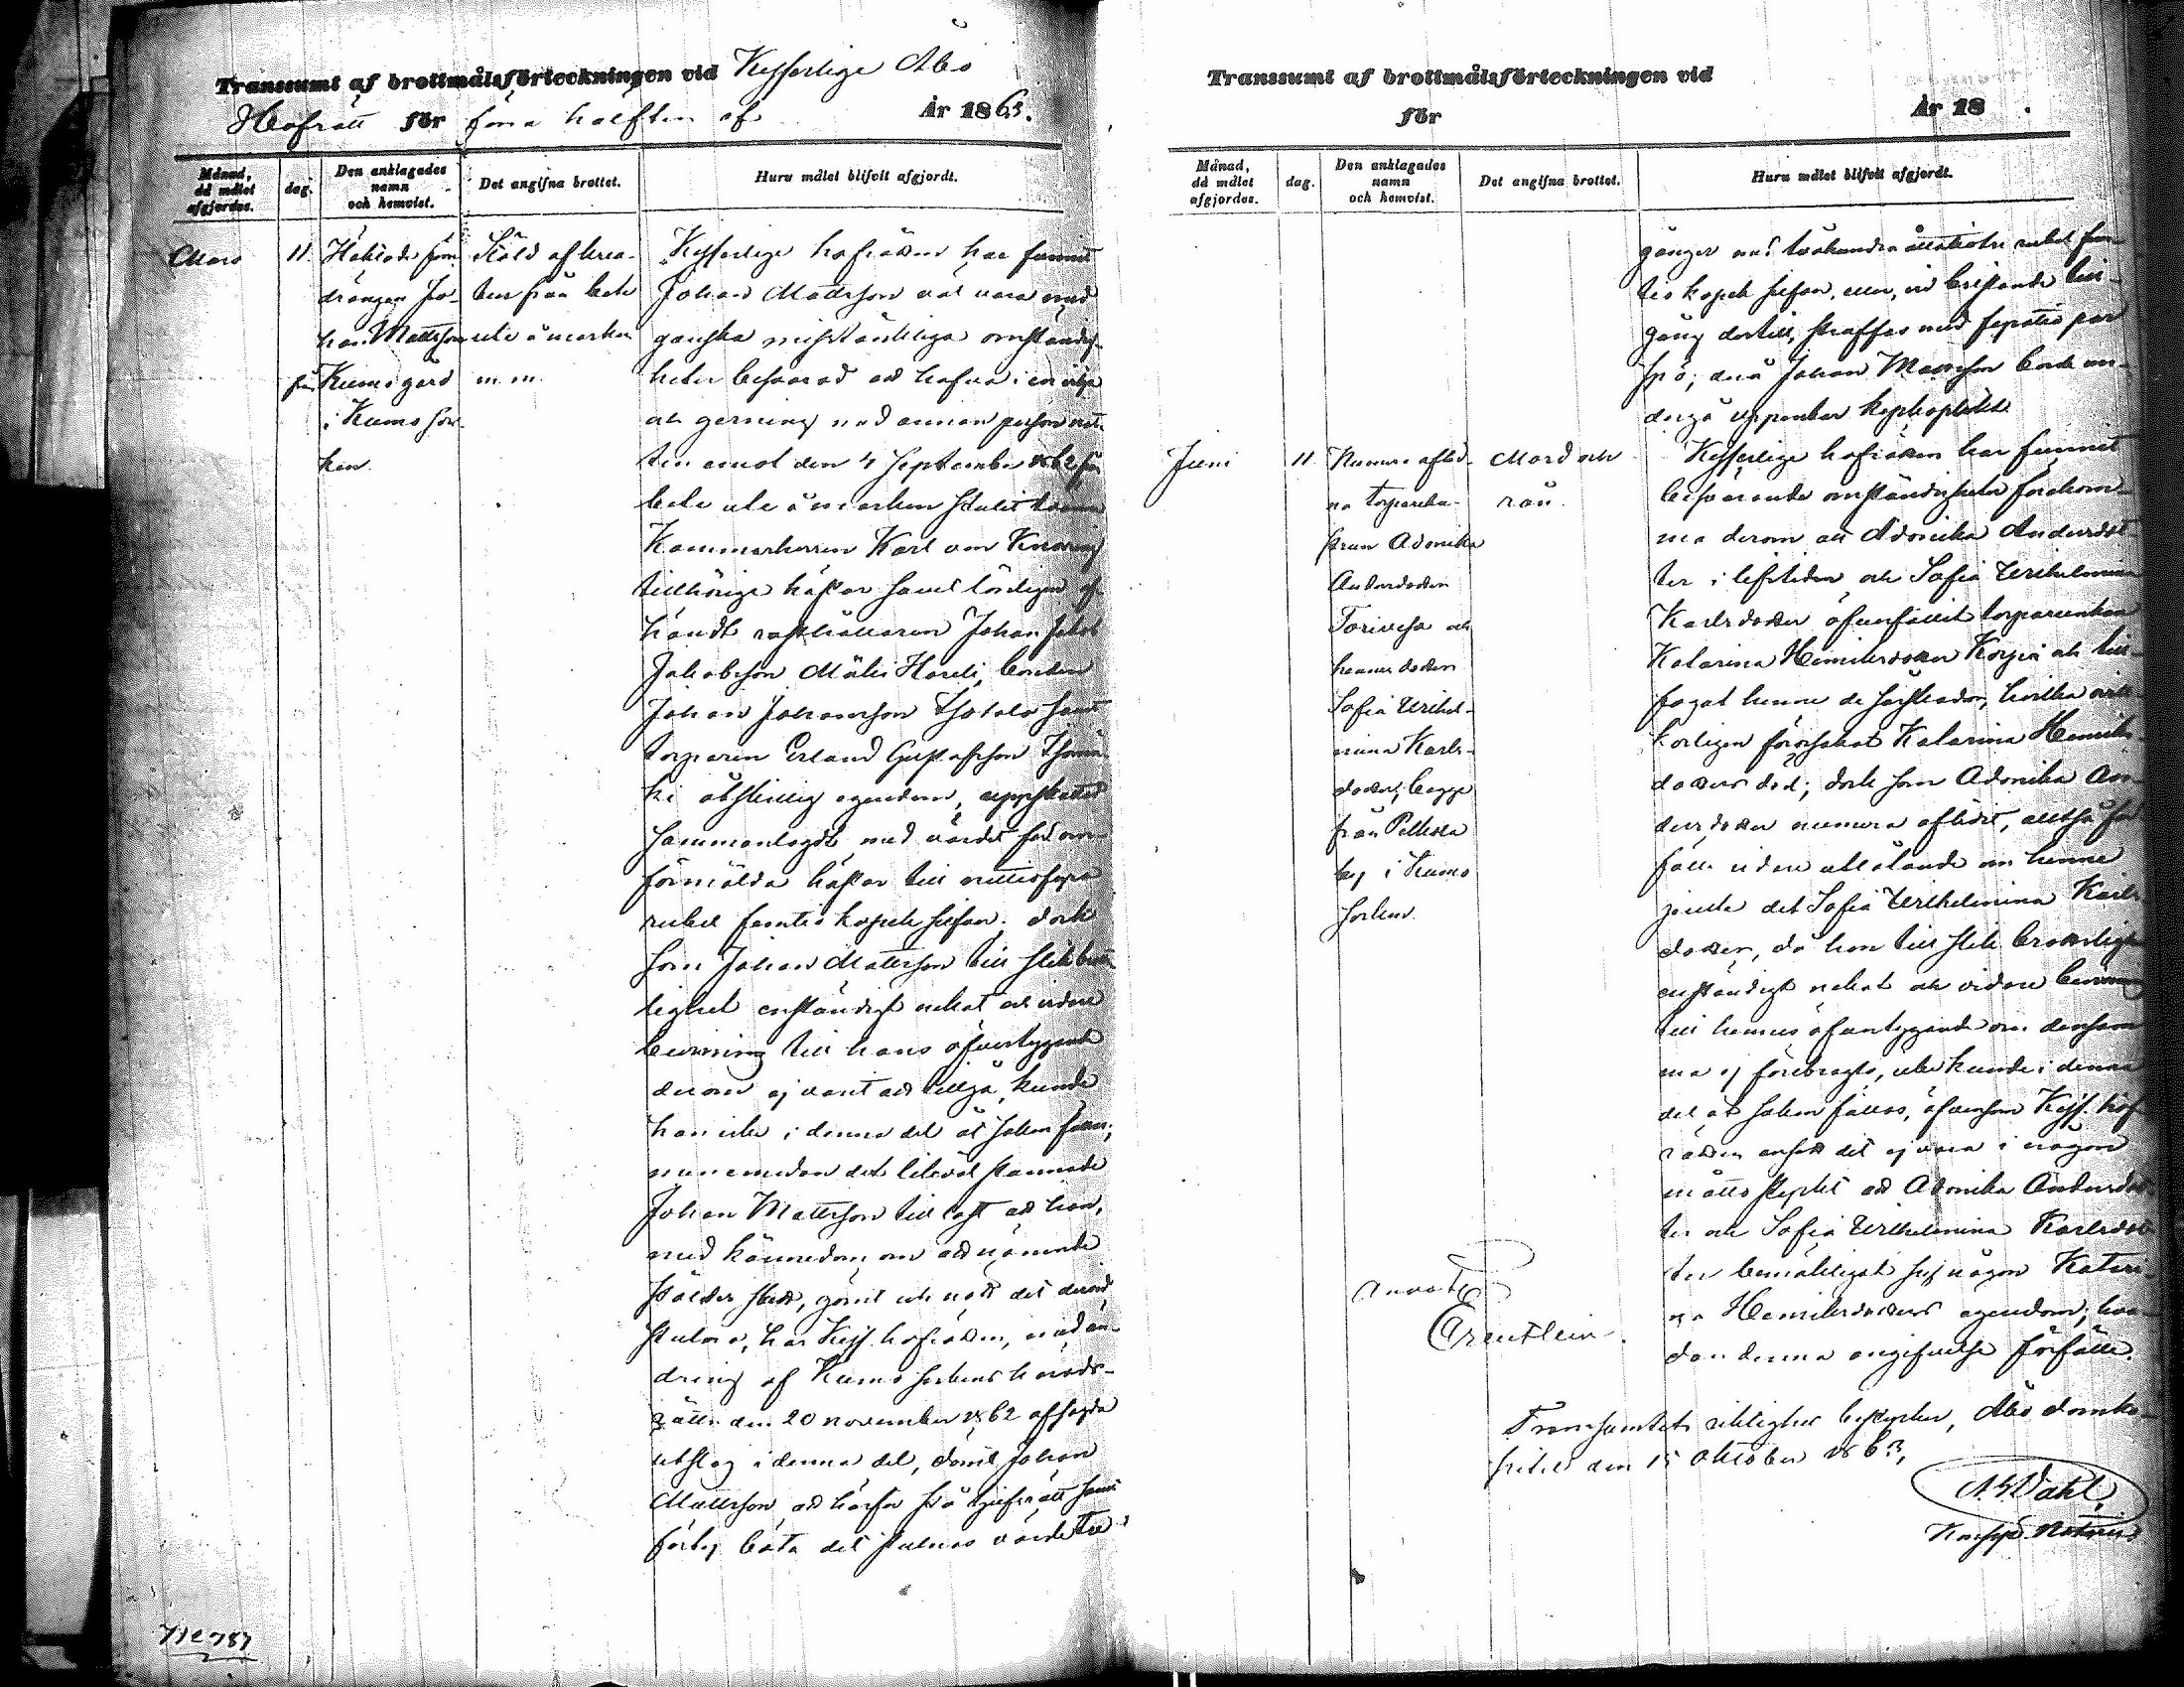 Transsumt af brottmålsförteckningen vid Kejserlige Åbo
Hofrätt för förra hälften af År 1863.
Månad, då målet afgjordes.
dag.
Den anklagades namn och hemvist.
Det angifna brottet.
Huru målet blifvit afgjordt.
Mars
11.
Häktade före
drängen Jo-
han Mattsson
från Kumo gård
i Kumo soc-
ken.
Stöld af krea-
tur från bete
ute å marken
m. m.
Kejserlige hofrätten har funnit
Johan Mattsson väl vara med
ganska misstänkliga omständig-
heter besvarad att hafva i en vilja
och gerning med annan person nat-
ten emot den 4 September 1862 från
bete ute å marken stulit tvenne
Kammarherren Karl von Knorring
tillhörige hästar samt löseligen af-
händt rusthållaren Johan Jakob
Jakobsson Mälis Hareli, bonden
Johan Johansson Isotalo samt
torparen Erland Gustafsson Isomä-
ki åtskillig egendom, uppskattad
sammanlagdt med värdet för om-
förmälda hästar till nittiofyra
rubel femtio kopek silfver; dock
som Johan Mattsson till slik brott-
lighet enständigt nekat och vidare
bevisning till hans öfvertygande
derom ej varit att tillgå, kunde
han icke i denna del åt saken fällas;
men emedan det likväl stannade
Johan Mattsson till last att han,
med kännedom om att nämnde
stölder skett, gömt och nött det dervid
stulna, har Kejs. hofrätten, med än-
dring af Kumo sockens härads-
rätts den 20 november 1862 afsagda
utslag i denna del, dömt Johan
Mattsson att härför så tjufs rätt som
förty böta det stulnas värde tre
7lc787
Transsumt af brottmålsförteckningen vid
för År 18 .
Månad, då målet afgjordes.
dag.
Den anklagades namn och hemvist.
Det angifna brottet.
Huru målet blifvit afgjordt.
gånger med tvåhundra åttatiotre rubel fem-
tio kopek silfver, eller, vid bristande till-
gång dertill, straffas med fyratio par
spö; dera Johan Mattsson borde un-
dergå uppenbar kyrkoplikt.
Juni
11
Numera aflid-
na torpareen-
kan Adonika
Andersdotter
Torivesa och
hennes dotter
Sofia Wilhel-
mina Karls-
dotter, begge
från Pelkola
by i Kumo
socken.
Mord och
rån.
Kejserlige hofrätten har funnit
besvärande omständigheter förekom-
ma derom att Adonika Andersdot-
ter i lifstiden och Sofia Wilhelmina
Karlsdotter öfverfallit torpareenkan
Katarina Henriksdotter Korpi och till-
fogat henne de sårskador, hvilka verk-
korligen förorsakat Katarina Henriks-
dotters död; dock som Adonika An-
dersdotter numera aflidit, alltså för-
fölle vidare utlåtande om henne
jemte det Sofia Wilhelmina Karls-
dotter, då hon till slik brottslighet
enständigt nekat och vidare bevisning
till hennes öfvertygande om densam-
ma ej förebragts, icke kunde i denna
del åt saken fällas, äfvensom Kejs. hof-
rätten ansett det ej vara i någon
måtto styrkt att Adonika Andersdot-
ter och Sofia Wilhelmina Karlsdot-
ter bemäktigat sig någon Katari-
na Henriksdotters egendom; hva-
dan denna angifvelse förfölle.
Transsumtets riktighet bestyrker, Åbo domka-
pitel den 15 Oktober 1863,
N. G. Dahl.
Notarie